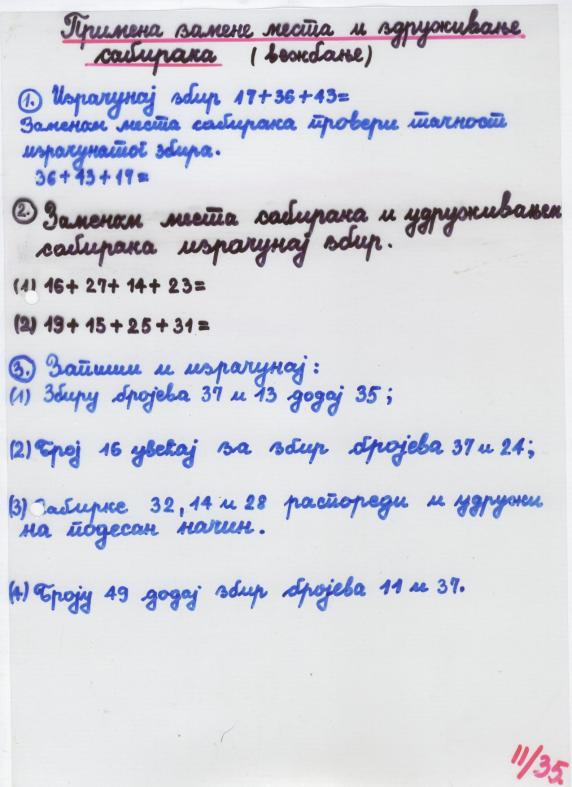 Примена замене места и здруживање
сабирака (вежбање)
1. Израчунај збир 17+36+43=
Заменом места сабирака провери тачност
израчунатог збира.
36+43+17=
2. Заменом места сабирака и удруживањем
сабирака израчунај збир.
(1) 16+27+14+23=
(2) 19+15+25+31=
3. Запиши и израчунај:
(1) Збиру бројева 37 и 13 додај 35;
(2) Број 16 увећај за збир бројева 37 и 24;
(3) Сабирке 32, 14 и 28 распореди и удружи
на подесан начин.
(4) Броју 49 додај збир бројева 11 и 37.
11/35.